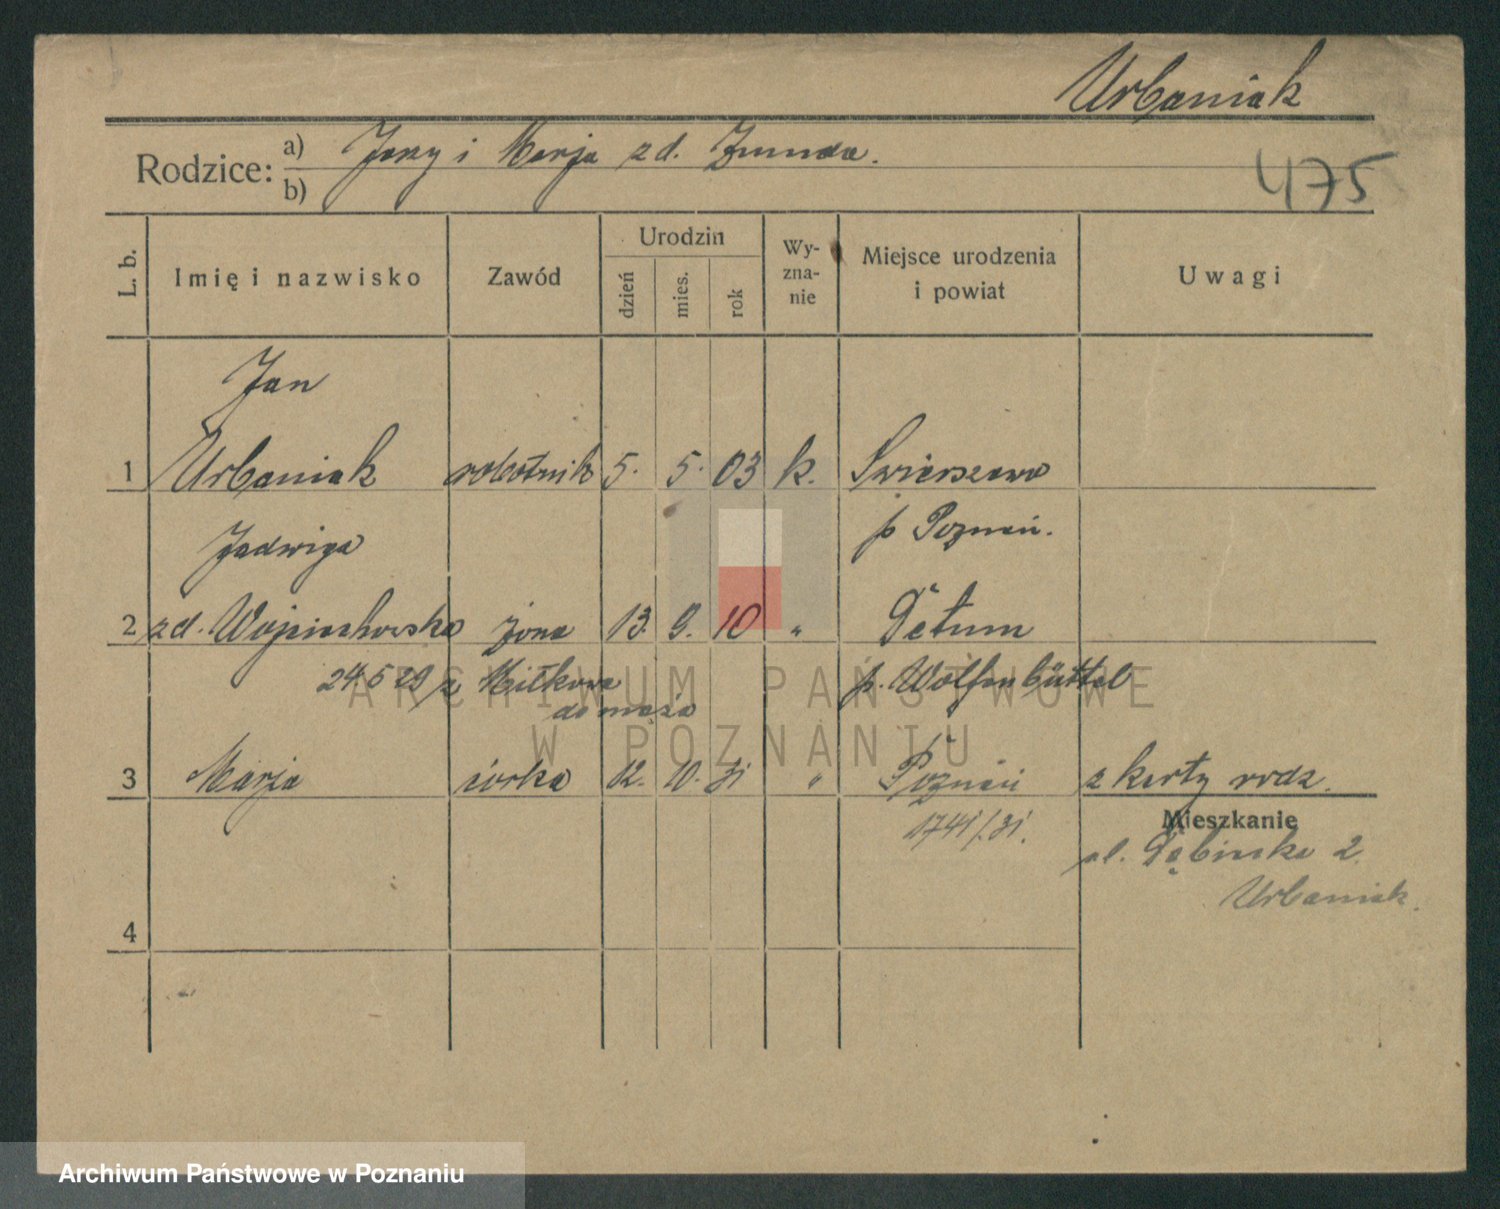 Urbaniak
Rodzice: a) Jerzy i Marja zd. Żmuda.
b)
475
L. b.
Imię i nazwisko
Zawód
Urodzin
dzień
mies.
rok
Wy-
zna-
nie
Miejsce urodzenia
i powiat
Uwagi
Jan
1 Urbaniak robotnik 5. 5. 03 k. Świerszewo
p Poznań.
Jadwiga
2 zd. Wojciechowska żona 13. 9. 10 „ Détum
24.5 29 z Miłkowa p. Wolfenbüttel
do męża
3 Marja córka 12. 10. 31 „ Poznań z karty rodz.
1741/31.
Mieszkanie
ul. Dębińska 2.
Urbaniak.
4
ARCHIWUM PAŃSTWOWE
W POZNANIU
Archiwum Państwowe w Poznaniu